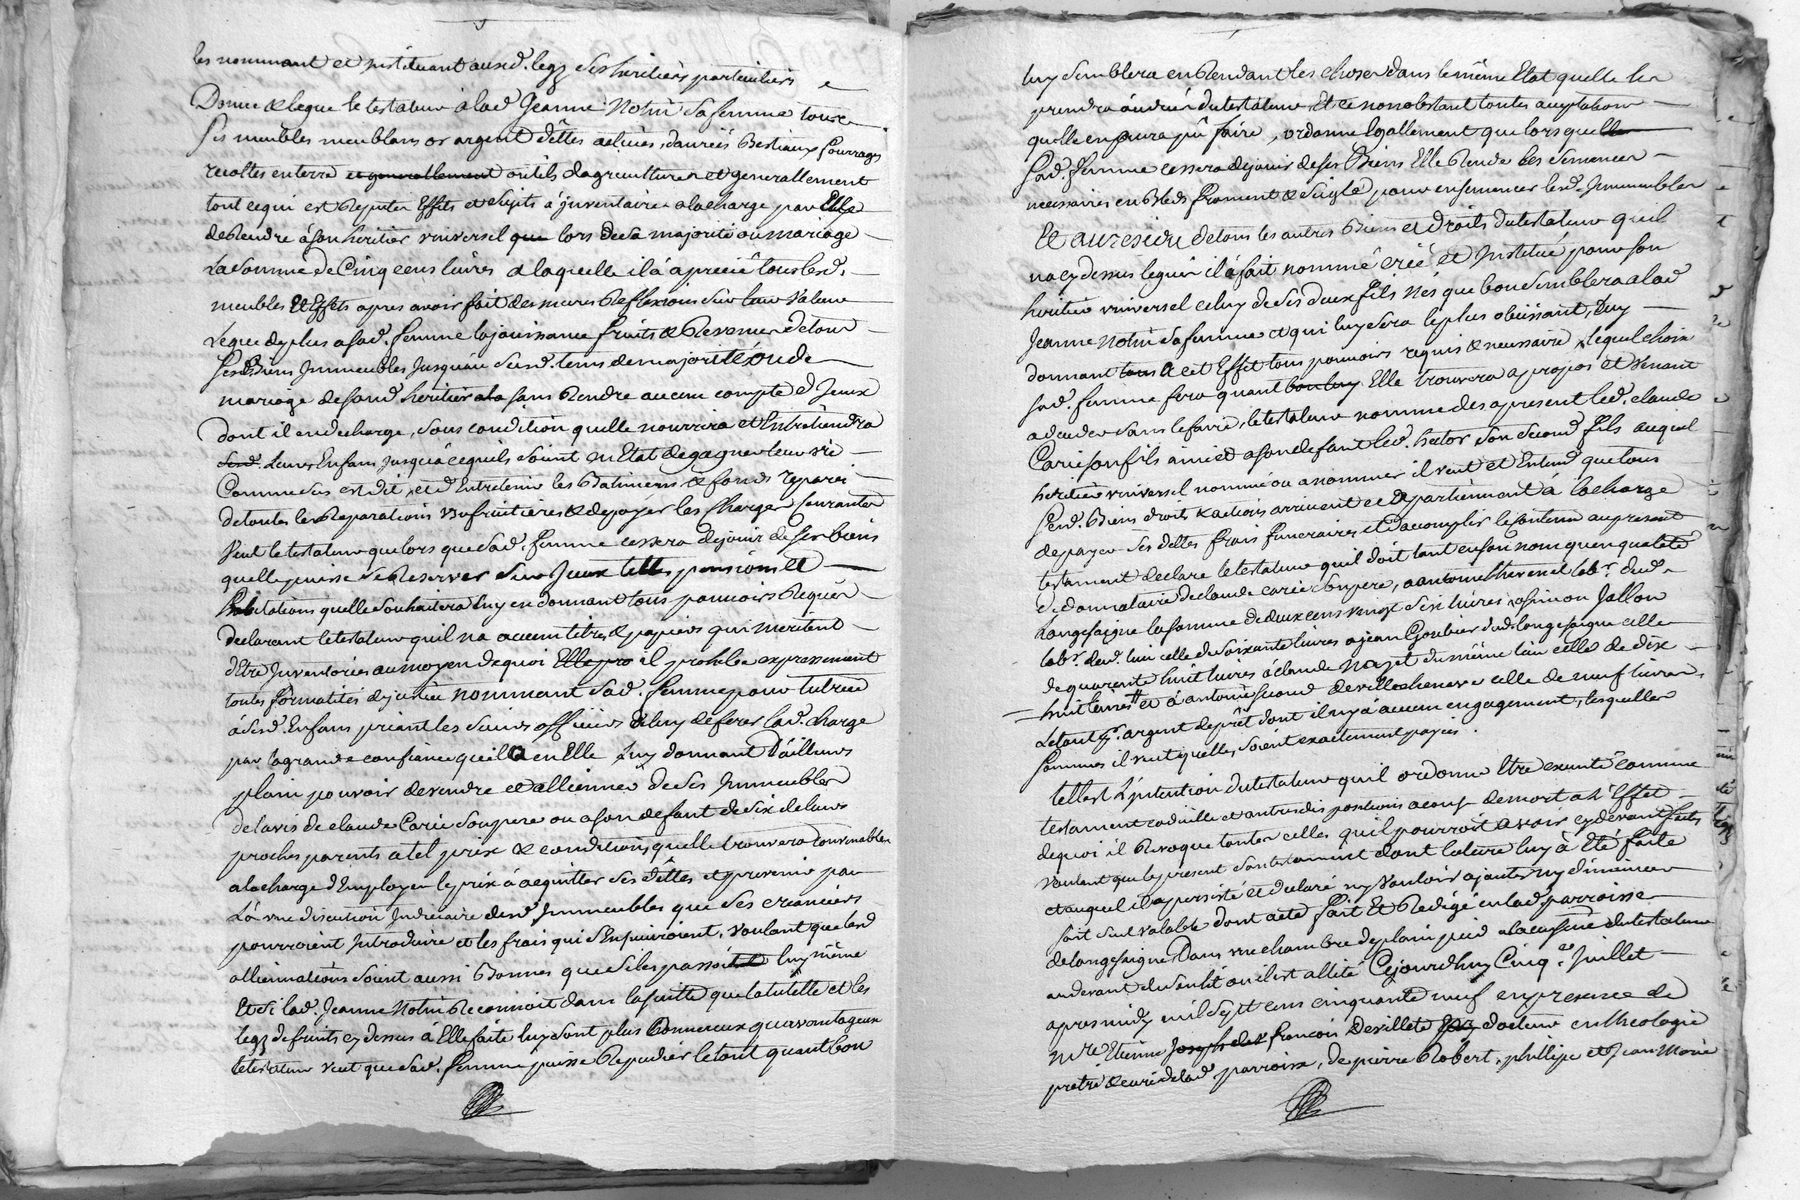 les nommant et instituant ausd. legz ses heritiers particuliers
Donne & legue le testateur a lad Jeanne Notin sa femme tous
ses meubles meublans or argent dêttes actives, danrées Bestiaux fourrages
recoltes enterre et generallement outils dagriculture et generallement
tout cequi est Reputer Effets et sujets à jnventaire alacharge par Elle
de Rendre à son heritier vniversel que lors desa majorité ou mariage
La somme de Cinq cens livres a laquelle il à apreciê tous lesd.
meubles Et Effets apres avoir fait des mures Reflexions sur leur valeur
Legue deplus asad. femme lajouissance fruits & Revenus detous
sesd Biens Jmmeubles Jusquau susd. tems demajorité ou de
mariage de sond. heritier ala sans Rendre aucun compte d Jceux
dont il en decharge, sous condition quelle nourrira et Entretiendra
sesd. leurs Enfans jusqu'à cequils soient en Etat degagner leur vie
Comme dus est dit, et d'Entretenir les Batimens & fonds reparer
detoutes les Reparations vsufruitieres & depayer les charges courantes
Veut le testateur que lors que sad. femme cessera dejouir de ses biens
quelle puisse se Reserver sur Jceux telles pensions et
habitations quelle souhaitera luy en donnant tous pouvoirs Requis
declarant le testateur quil na aucun titres & papiers qui meritent
d'Etre Jnventoriés au moyen dequoi Elle pro il prohibe expressement
toutes formalités dejustice nommant sad. femme pour tutrice
à sesd. Enfans priant les sieurs officiers de luy deferer lad. charge
par lagrande confiance quil a en Elle luy donnant D'ailleurs
plain pouvoir devendre et alliener de ses Jmmeubles
delavis de claude Carié son pere ou ason defaut de six de leurs
proches parents atel prix & conditions quelle trouvera convenables
alacharge d'Employer le prix à acquitter ses dêttes et prevenir par
Là vne discution Judiciaire desd. Jmmeubles que ses creanciers
pourroient Jntroduire et les frais qui s'Ensuivroient, voulant que lesd
alliennations soient aussi Bonnes que siles passoit luy même
Et si lad. Jeanne Notin Reconnoit dans la suitte que la tutelle et les
legz de fruits cy dessus à Elle faits luy sont plus onnereux quavantageux
le testateur veut que sad. femme puisse Repudier le tout quant bon
luy semblera en Rendant les choses dans le même Etat quelle les
prendra audecés du testateur, Et ce nonobstant toutes acceptations
quelle en poura pû faire, ordonne Egallement que lorsque
sad. femme cessera dejouir de ses Biens Elle Rende les semences
necessaires en Bleds froment & seigle pour ensemencer lesd. Jmmeubles
Et au residu detous les autres Biens et droits du testateur quil
na cy dessus legués il à fait nommé créé et Jnstitué pour son
heritier vniversel celuy de ses deux fils nés que bon semblera a lad
Jeanne Notin sa femme et qui luy sera le plus obeissant, luy
donnant tous A cet Effet tous pouvoirs requis & necessaires, lequel choix
sad. femme fera quant bon luy Elle trouvera apropos et venant
a deceder sans le faire, le testateur nomme des apresent led. claude
Carié son fils ainé et ason defaut led. hector son second fils auquel
heritier vniversel nommé ou anommer il veut et Entend que tous
sesd. Biens droits & actions arrivent et apartiennent à lacharge
depayer ses dettes frais funeraires, et d'accomplir le contenu au present
testament declare le testateur quil doit tant enson nom quen qualité
de donnataire de claude carié son pere, a antoine thevenet labr. dud.
Longesaigne la somme de deux cens vingt six livres, asimon Jallon
labr. dud. lieu celle de soixante livres ajean Goubier dud. longesaigne celle
de quarente huit livres à claude Nazet du même lieu celle de dix
huit livres et à antoine Giraud devillechenève celle de neuf livres,
Letout pr. argent deprêt dont il nya aucun engagement, lesquelles
sommes il veut quelles soient exactement payées.
telle est L'jntention du testateur quil ordonne Etre executé comme
testament codicille et autres dispositions acause de mort a l'Effet
dequoi il Revoque toutes celles quil pourroit avoir cy devant faits
voulant que le present son testament dont lecture luy à Eté faite
et auquel il a persisté et declaré ny vouloir ajouter ny diminuer
soit seul valable dont acte fait Et Redigé en lad. parroisse
de longesaigne Dans vne chambre deplain pied du testateur
au devant du son lit ou il est allité Cejourdhuy Cinq.e Juillet
apres midy mil sept cens cinquante neuf en presence de
mre Etienne Joseph alex francois Devillete docteur en theologie
pretre & curé delad. parroisse, de pierre Robert, phillipe et Jean Marie